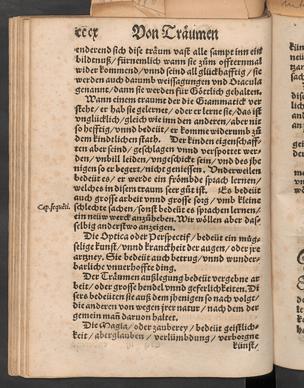 cccx Von Träumen
enderend sich dise träum vast alle sampt inn ein
bildtnuß/ fürnemlich wann sie zům offternmal
wider kommend/ vnnd seind all glückhafftig/ sie
werden auch darumb weissagungen vnd Oracula
genannt/ dann sie werden für Göttlich gehalten.
Wann einem traume der die Grammatick ver
steht/ er hab sie gelernet/ oder er lerne sie/ das ist
vnglücklich/ gleich wie inn den anderen/ aber nit
so hefftig/ vnnd bedeüt/ er komme widerumb zů
dem kindelichen stath. Der kinden eigenschaff-
ten aber seind/ geschlagen vnnd verspottet wer-
den/ vnbill leiden/ vngeschickt sein/ vnd des jhe
nigen so er begert/ nicht geniessen. Underweilen
bedeüt es/ er werde ein frömbde sprach lernen/
welches in disem traum seer gůt ist. Es bedeüt
auch grosse arbeit vnnd grosse sorg/ vmb kleine
Cap. sequēti. schlechte sachen/ sonst bedeüt es sprachen lernen/
ein neüw werck anzůheben. Wir wöllen aber das-
selbig anderstwo anzeigen.
Die Optica oder Perspectif/ bedeüt ein müg
selige kunst/ vnnd kranckheit der augen/ oder jre
artzney. Sie bedeüt auch betrug/ vnnd wunder-
barliche vnuerhoffte ding.
Der Träumen außlegung bedeüt vergebne ar
beit/ oder grosse hendel vnnd geferlicheiten. Di
sers bedeüten sie auß dem jhenigen so nach volgt/
die anderen von wegen jrer natur/ nach dem der
gemein man daruon haltet.
Die Magia/ oder zauberey/ bedeüt geistlich-
keit/ aberglauben/ verlümbdung/ verborgne
künst/